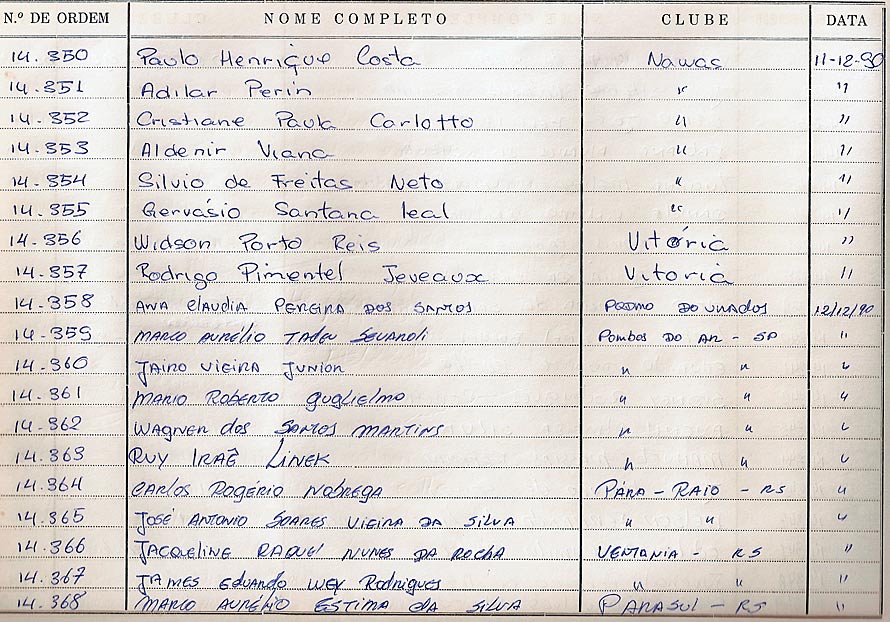 N.º DE ORDEM NOME COMPLETO CLUBE DATA
14.350 Paulo Henrique Costa Nawas 11-12-90
14.351 Adilar Perin " "
14.352 Cristiane Paula Carlotto " "
14.353 Aldenir Viana " "
14.354 Silvio de Freitas Neto " "
14.355 Gervásio Santana leal " "
14.356 Widson Porto Reis Vitória "
14.357 Rodrigo Pimentel Jeveaux Vitoria "
14.358 ANA CLAUDIA PEREIRA DOS SANTOS DOURADOS 12/12/90
14.359 MARCO AURÉLIO TADEU Pombos DO AR - SP "
14.360 JAIRO VIEIRA JUNIOR " " "
14.361 MARIO ROBERTO GUGLIELMO " " "
14.362 WAGNER DOS SANTOS MARTINS " " "
14.363 RUY IRAÊ LINEK " " "
14.364 CARLOS ROGÉRIO NOBREGA PÁRA - RAIO - RS "
14.365 JOSÉ ANTONIO SOARES VIEIRA DA SILVA " " "
14.366 JACQUELINE RAQUEL NUNES DA ROCHA VENTANIA - RS "
14.367 JAMES EDUARDO WEY Rodrigues " " "
14.368 MARCO AURÉLIO ESTIMA da SILVA PARASUL - RS "